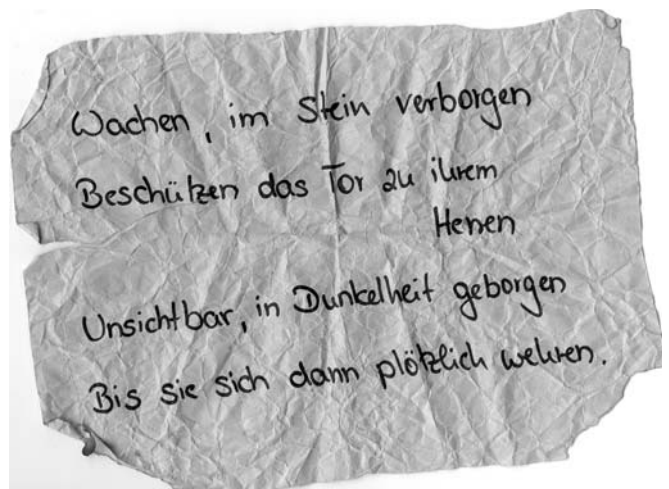 Wachen, im Stein verborgen
Beschützen das Tor zu ihrem
Herren
Unsichtbar, in Dunkelheit geborgen
Bis sie sich dann plötzlich wehren.